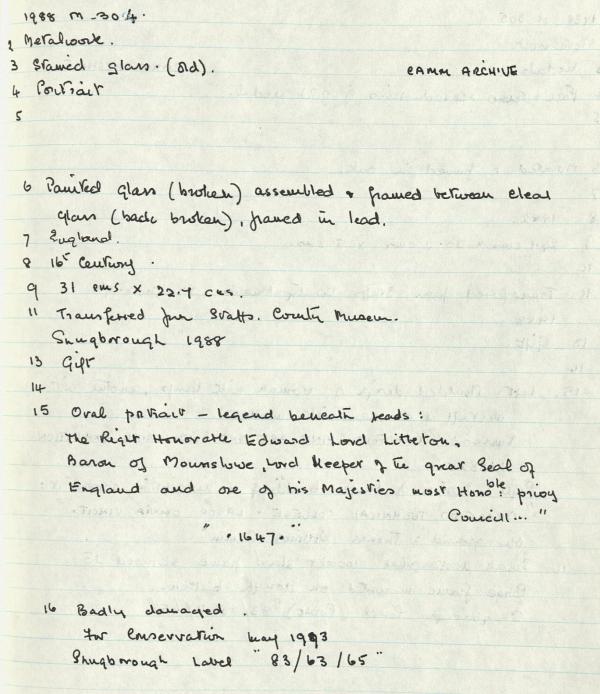 1988 M-304.
2 Metalwork.
3 Stained glass. (old).
CAMM ARCHIVE
4 Portrait
5
6 Painted glass (broken) assembled & framed between clear
glass (back broken), framed in lead.
7 England.
8 16th Century.
9 31 cms x 22.7 cms.
11 Transferred from Staffs. County Museum.
Shugborough 1988
13 Gift
14
15 Oval portrait - legend beneath reads:
The Right Honorable Edward Lord Littleton,
Baron of Mounslowe, Lord Keeper of the great Seal of
England and one of his Majesties most Honoble: privy
Councill... "
" . 1647 . "
16 Badly damaged.
For Conservation May 1993
Shugborough Label " 83/63/65 "